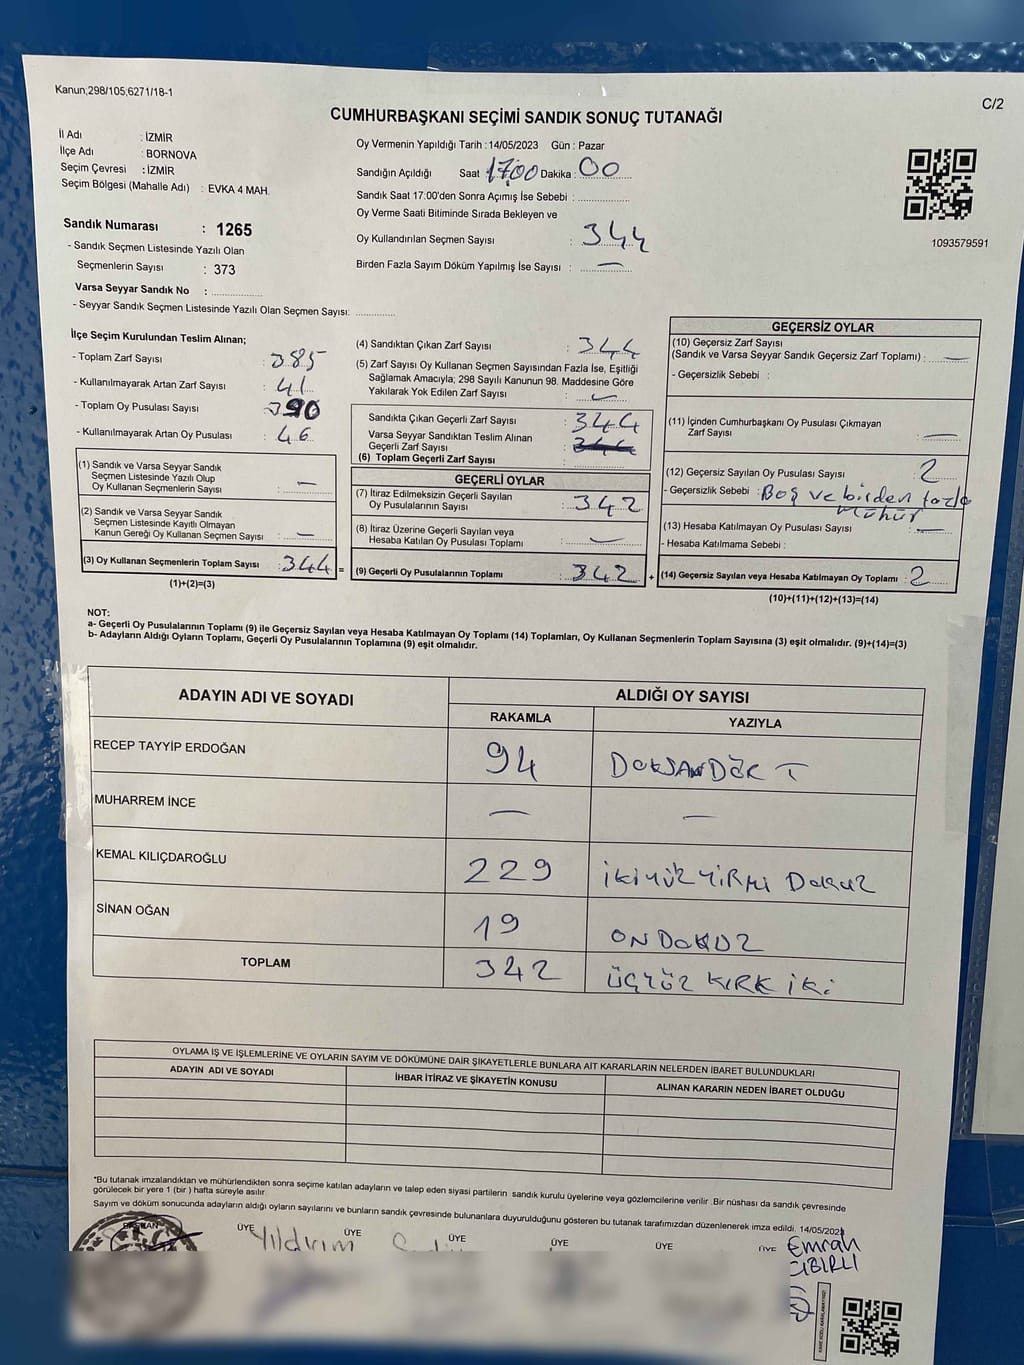 Kanun;298/105;6271/18-1
C/2
CUMHURBAŞKANI SEÇİMİ SANDIK SONUÇ TUTANAĞI
İl Adı : İZMİR
İlçe Adı : BORNOVA
Seçim Çevresi : İZMİR
Seçim Bölgesi (Mahalle Adı) : EVKA 4 MAH.
Sandık Numarası : 1265
- Sandık Seçmen Listesinde Yazılı Olan
Seçmenlerin Sayısı : 373
Varsa Seyyar Sandık No :
- Seyyar Sandık Seçmen Listesinde Yazılı Olan Seçmen Sayısı:
Oy Vermenin Yapıldığı Tarih : 14/05/2023 Gün : Pazar
Sandığın Açıldığı Saat 17:00 Dakika : 00
Sandık Saat 17:00'den Sonra Açımış İse Sebebi :
Oy Verme Saati Bitiminde Sırada Bekleyen ve
Oy Kullandırılan Seçmen Sayısı : 344
Birden Fazla Sayım Döküm Yapılmış İse Sayısı : —
1093579591
İlçe Seçim Kurulundan Teslim Alınan;
- Toplam Zarf Sayısı : 385
- Kullanılmayarak Artan Zarf Sayısı : 41
- Toplam Oy Pusulası Sayısı : 390
- Kullanılmayarak Artan Oy Pusulası : 46
(1) Sandık ve Varsa Seyyar Sandık
Seçmen Listesinde Yazılı Olup
Oy Kullanan Seçmenlerin Sayısı : —
(2) Sandık ve Varsa Seyyar Sandık
Seçmen Listesinde Kayıtlı Olmayan
Kanun Gereği Oy Kullanan Seçmen Sayısı : —
(3) Oy Kullanan Seçmenlerin Toplam Sayısı : 344 =
(1)+(2)=(3)
(4) Sandıktan Çıkan Zarf Sayısı : 344
(5) Zarf Sayısı Oy Kullanan Seçmen Sayısından Fazla İse, Eşitliği
Sağlamak Amacıyla; 298 Sayılı Kanunun 98. Maddesine Göre
Yakılarak Yok Edilen Zarf Sayısı : —
Sandıkta Çıkan Geçerli Zarf Sayısı : 344
Varsa Seyyar Sandıktan Teslim Alınan
Geçerli Zarf Sayısı : 344
(6) Toplam Geçerli Zarf Sayısı :
GEÇERLİ OYLAR
(7) İtiraz Edilmeksizin Geçerli Sayılan
Oy Pusulalarının Sayısı : 342
(8) İtiraz Üzerine Geçerli Sayılan veya
Hesaba Katılan Oy Pusulası Toplamı : —
(9) Geçerli Oy Pusulalarının Toplamı : 342 +
GEÇERSİZ OYLAR
(10) Geçersiz Zarf Sayısı
(Sandık ve Varsa Seyyar Sandık Geçersiz Zarf Toplamı) : —
- Geçersizlik Sebebi :
(11) İçinden Cumhurbaşkanı Oy Pusulası Çıkmayan
Zarf Sayısı : —
(12) Geçersiz Sayılan Oy Pusulası Sayısı : 2
- Geçersizlik Sebebi : Boş ve birden fazla
mühür
(13) Hesaba Katılmayan Oy Pusulası Sayısı : —
- Hesaba Katılmama Sebebi :
(14) Geçersiz Sayılan veya Hesaba Katılmayan Oy Toplamı : 2
(10)+(11)+(12)+(13)=(14)
NOT:
a- Geçerli Oy Pusulalarının Toplamı (9) ile Geçersiz Sayılan veya Hesaba Katılmayan Oy Toplamı (14) Toplamları, Oy Kullanan Seçmenlerin Toplam Sayısına (3) eşit olmalıdır. (9)+(14)=(3)
b- Adayların Aldığı Oyların Toplamı, Geçerli Oy Pusulalarının Toplamına (9) eşit olmalıdır.
ADAYIN ADI VE SOYADI
ALDIĞI OY SAYISI
RAKAMLA YAZIYLA
RECEP TAYYİP ERDOĞAN 94 DOKSANDÖRT
MUHARREM İNCE — —
KEMAL KILIÇDAROĞLU 229 İKİYÜZ YİRMİ DOKUZ
SİNAN OĞAN 19 ON DOKUZ
TOPLAM 342 ÜÇYÜZ KIRK İKİ
OYLAMA İŞ VE İŞLEMLERİNE VE OYLARIN SAYIM VE DÖKÜMÜNE DAİR ŞİKAYETLERLE BUNLARA AİT KARARLARIN NELERDEN İBARET BULUNDUKLARI
ADAYIN ADI VE SOYADI İHBAR İTİRAZ VE ŞİKAYETİN KONUSU ALINAN KARARIN NEDEN İBARET OLDUĞU
*Bu tutanak imzalandıktan ve mühürlendikten sonra seçime katılan adayların ve talep eden siyasi partilerin sandık kurulu üyelerine veya gözlemcilerine verilir .Bir nüshası da sandık çevresinde
görülecek bir yere 1 (bir ) hafta süreyle asılır.
Sayım ve döküm sonucunda adayların aldığı oyların sayılarını ve bunların sandık çevresinde bulunanlara duyurulduğunu gösteren bu tutanak tarafımızdan düzenlenerek imza edildi. 14/05/2023
BAŞKAN ÜYE ÜYE ÜYE ÜYE ÜYE ÜYE
Yıldırım
Emrah